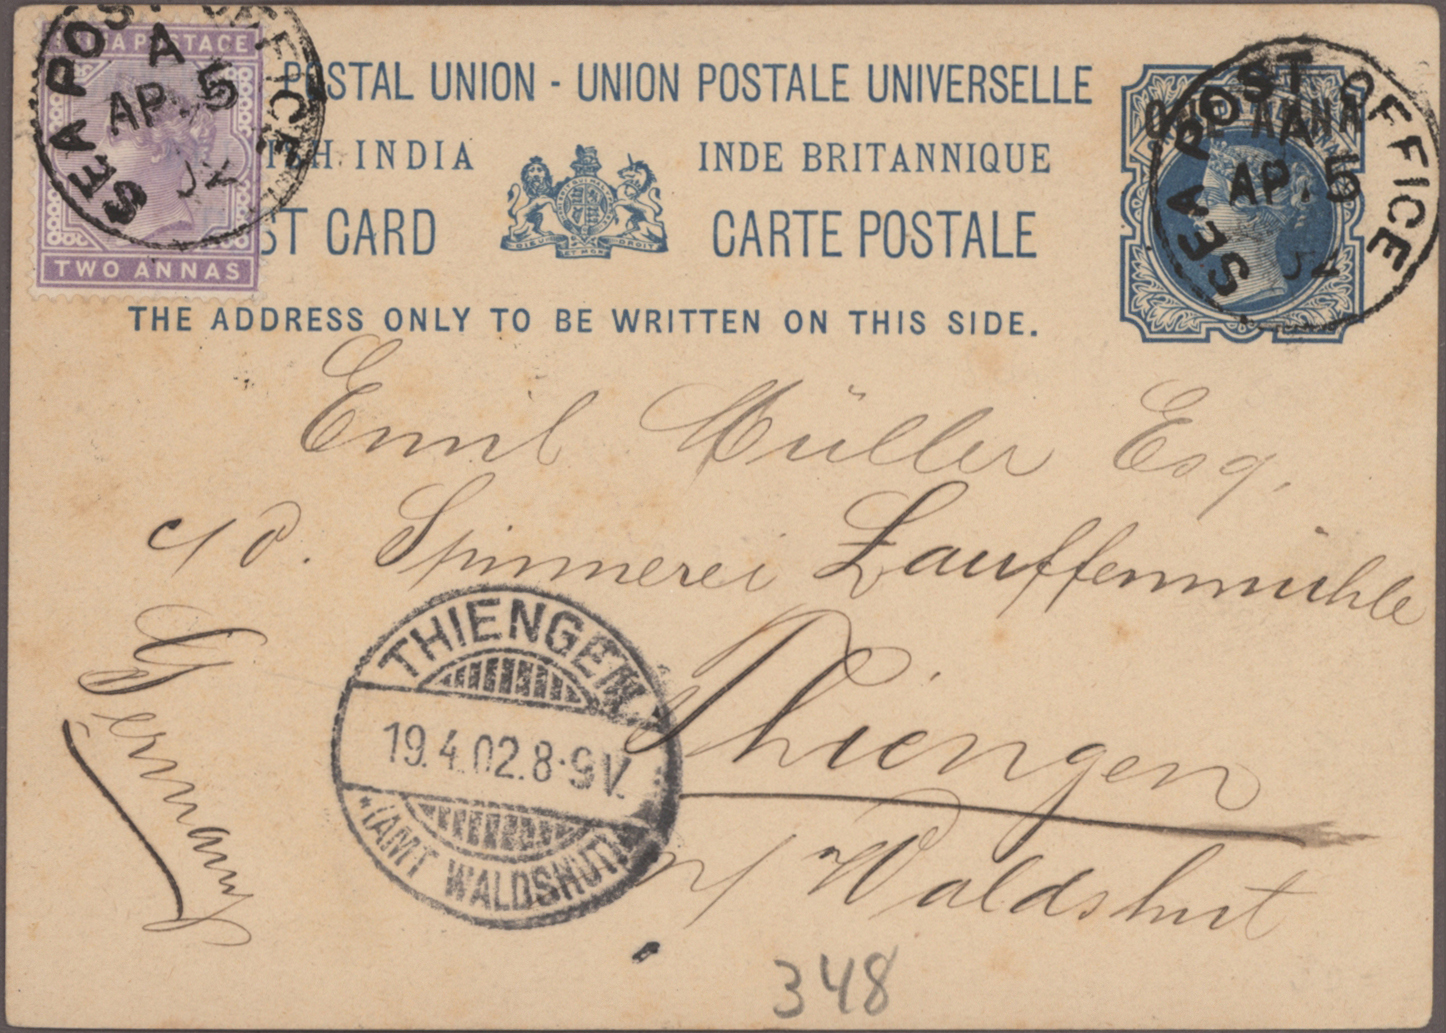 INDIA POSTAGE
TWO ANNAS
SEA POST OFFICE
A
AP. 5
02
POSTAL UNION - UNION POSTALE UNIVERSELLE
INDIA
INDE BRITANNIQUE
ST CARD
CARTE POSTALE
DIEU ET MON DROIT
THE ADDRESS ONLY TO BE WRITTEN ON THIS SIDE.
ONE ANNA
SEA POST OFFICE
A
AP. 5
02
Emil Müller Esq.
c/o. Spinnerei Lauffenmühle
Thiengen
n/ Waldshut
Germany
THIENGEN
19.4.02.8-9V.
(AMT WALDSHUT)
348